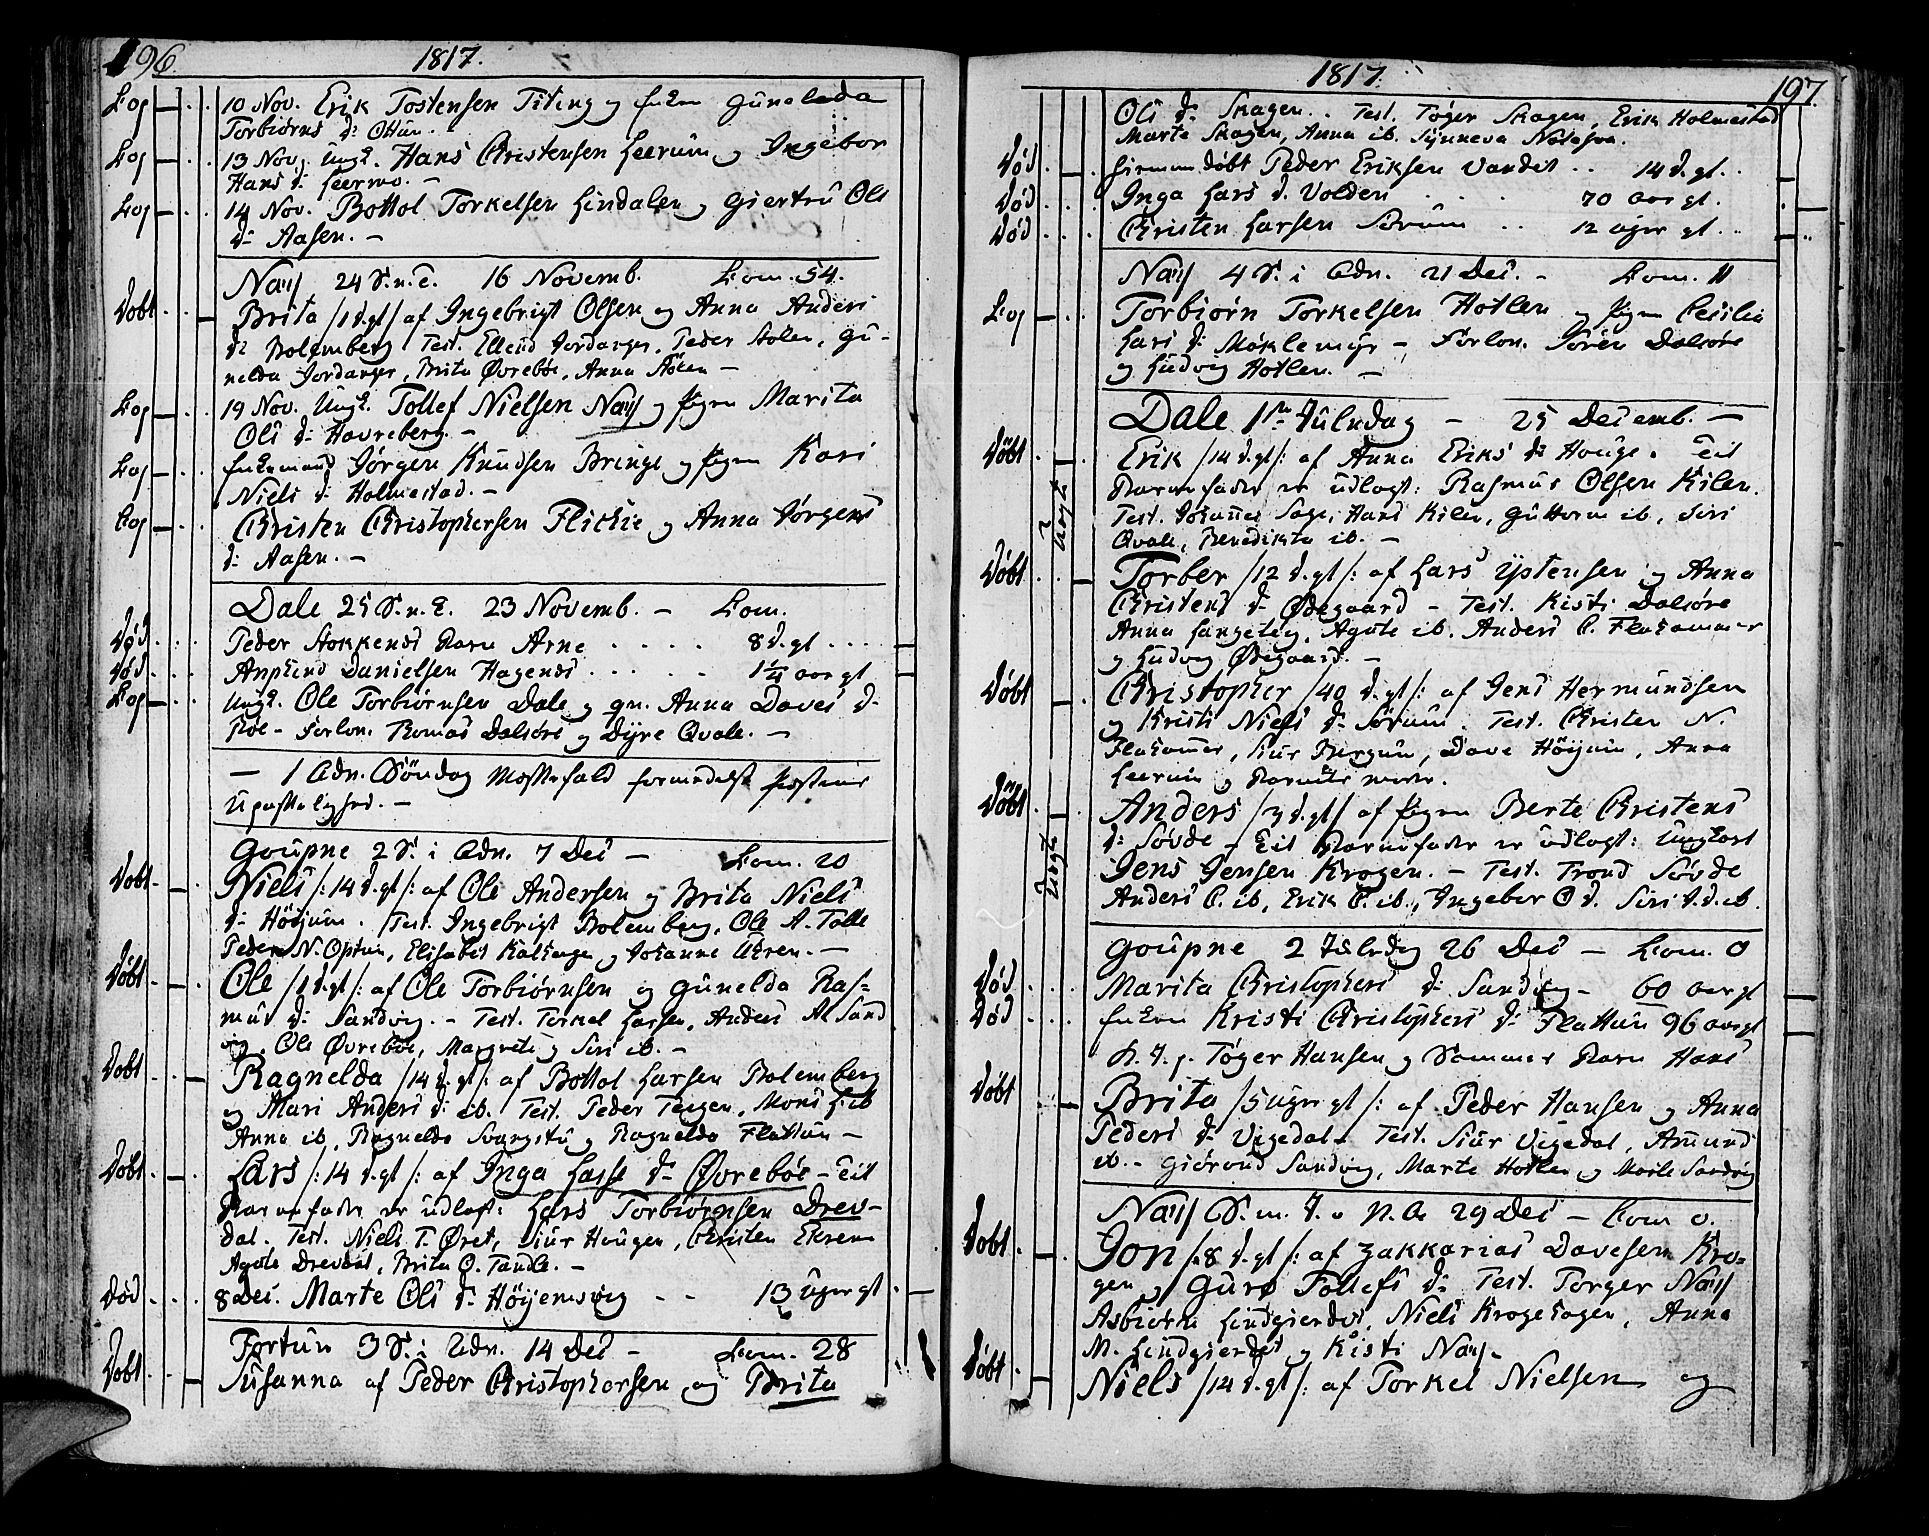 196.
1817.
Cop 10 Nov. Erik Tostensen Titing og Enken Gunelda
Torbiørns d: Ottun.
Cop 13 Nov. Ungk. Hans Christensen Leerum og Ingebor
Hans d: Leermo. —
Cop 14 Nov. Bottol Torkelsen Lindalen og Giertru Ols
d: Aasen. —
Næss 24 S. n. T. 16 Novemb. Com. 54.
Døbt Brita /1 d. gl/ af Ingebrigt Olsen og Anna Anders
d: Bolemberg Test. Ellend Jordanger, Peder Molen, Gu-
nelda Jordanger, Brita Øvrebøe, Anna
Cop 19 Nov. Ungk. Tollef Nielsen Næss og Pigen Marita
Ols d: Havreberg. —
Cop Enkemand Jørgen Knudsen Bringe og Pigen Kari
Niels d: Holmestad. —
Cop Christen Christophersen Flickie og Anna Jørgens
d: Aasen. —
Dale 25 S. n. T. 23 Novemb. — Com.
Død Peder Stokkenes Barn Arne 8 d. gl
Død Amlund Danielsen Hagenes 1¼ aar gl
Cop Ungk. Ole Torbiørnsen Dale og qn. Anna Daves d:
Røe — Forlon. Thomas Dalsøre og Dyre Qvale. —
— 1 Adv. Søndag Messefald formedelst Præstens
Upasselighed. —
Goupne 2 S. i Adv. 7 Dec — Com. 20
Døbt Niels /: 14 d. gl/: af Ole Andersen og Brita Niels
d: Høyjum. Test. Ingebrigt Bolemberg, Ole A. Tolle
Peder N. Optun, Elisabet Kalhage og Johanne Ekren. —
Døbt Ole /1 d. gl/: af Ole Torbiørnsen og Gunelda Ras-
mus d: Sandvig. — Test. Torkel Larsen, Anders A. Sand
vig, Ole Øvrebøe, Margrete og Siri ib. —
Døbt Ragnelda /14 d. gl/: af Bottol Larsen Bolemberg
og Mari Anders d: ib. Test. Peder Teigen, Mons L. ib
Anna ib, Ragnelda Svangstu og Ragnelda Flattun —
Døbt Lars /: 14 d. gl/: af Inga Lasse d: Øvrebøe — Til
Barnefader er udlagt: Lars Torbiørnsen Drev-
dal. Test. Niels T. Øret, Siur Hougen, Christen Ekren
Agate Drevdal, Brita O. Tandle. —
Død 8 Dec. Marte Ols d: Høyjemsvig 13 uger gl
Fortun 3 S. i Adv. 14 Dec — Com. 28
Døbt Susanna af Peder Christophersen og Brita
1817.
197.
Ols d: Skagen. Test. Tøger Skagen, Erik Holmestad
Marte Skagen, Anna ib. Synneva
Død Hiemmedøbt Peder Eriksen Vandet 14 d. gl.
Død Inga Lars d. Volden 70 aar gl.
Død Christen Larsen Sørum 12 uger gl.
Næss 4 S. i Adv. 21 Dec. — Com. 11
Cop Torbiørn Torkelsen Hotlen og Pigen Cecilia
Lars d: Møklemyr — Forlon. Søren Dalsøre
og Ludvig Hotlen. —
Dale 1ste Juledag — 25 Decemb. —
Døbt Erik /14 d. gl/: af Anna Eriks d: Houge. Til
Barnefader er udlagt: Rasmus Olsen Kilen.
Uægt
Test. Johannes Sage, Hans Kilen, Guttorm ib, Siri
Qvale, Benedikta ib. —
Døbt Torber /12 d. gl/: af Lars Ystensen og Anna
Christens d: Ødegaard — Test. Kisti Dalsøre
Anna Langeteig, Agate ib. Anders C. Flahammer
og Ludvig Ødegaard. —
Døbt Christopher /40 d. gl/: af Jens Hermundsen
og Kristi Niels d: Sørum. Test. Christen N.
Flahamer, Siur Bergum, Dave Høyum, Anna
Leerum og Barnets moder.
Døbt Anders /3 d. gl/ af Pigen Berte Christens
d: Søvde — Til Barnefader er udlagt: Ungkarl
Uægt
Jens Jensen Krogen. — Test. Trond Søvde
Anders C. ib, Erik C. ib., Ingebor O d. Siri J. d. ib.
Goupne 2 Juledag 26 Dec — Com. 0
Død Marita Christophers d: Sandvig — 60 aar gl
Død Enken Kristi Christophers d: Flattun 96 aar gl
D. F. p. Tøger Hansen og Sommer Barn Hans
Døbt Brita /5 uger gl/: af Peder Hansen og Anna
Peders d: Vigedal. Test. Siur Vigedal, Amund
ib. — Giørond Sandvig, Marte Hotlen og Marte Sandvig
Næss S. m. J. o N. A. 29 Dec — Com 0.
Døbt Jon /: 8 d. gl/: af Zakkarias Davesen Kro-
gen og Guro Tollefs d: Test. Torger Næss
Asbiørn Lindgierdet, Niels Krogehagen, Anna
M. Lindgierdet og Kisti Næss.
Døbt Niels /14 d. gl/: af Torkel Nielsen og